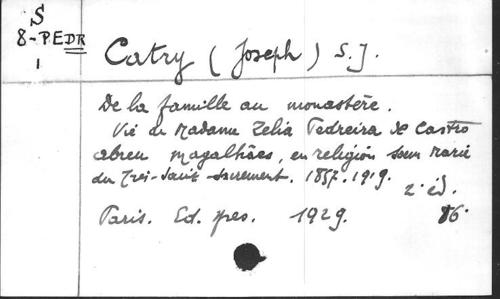 S
8-PEDR
1
Catry (Joseph) S.J.
De la famille au monastère.
Vie de Madame Zelia Pedreira de Castro
abreu magalhães, en religion soeur Marie
du Trés-Saint-Sacrement. 1857-1919.
2e éd.
Paris. Ed. 1929. 86.